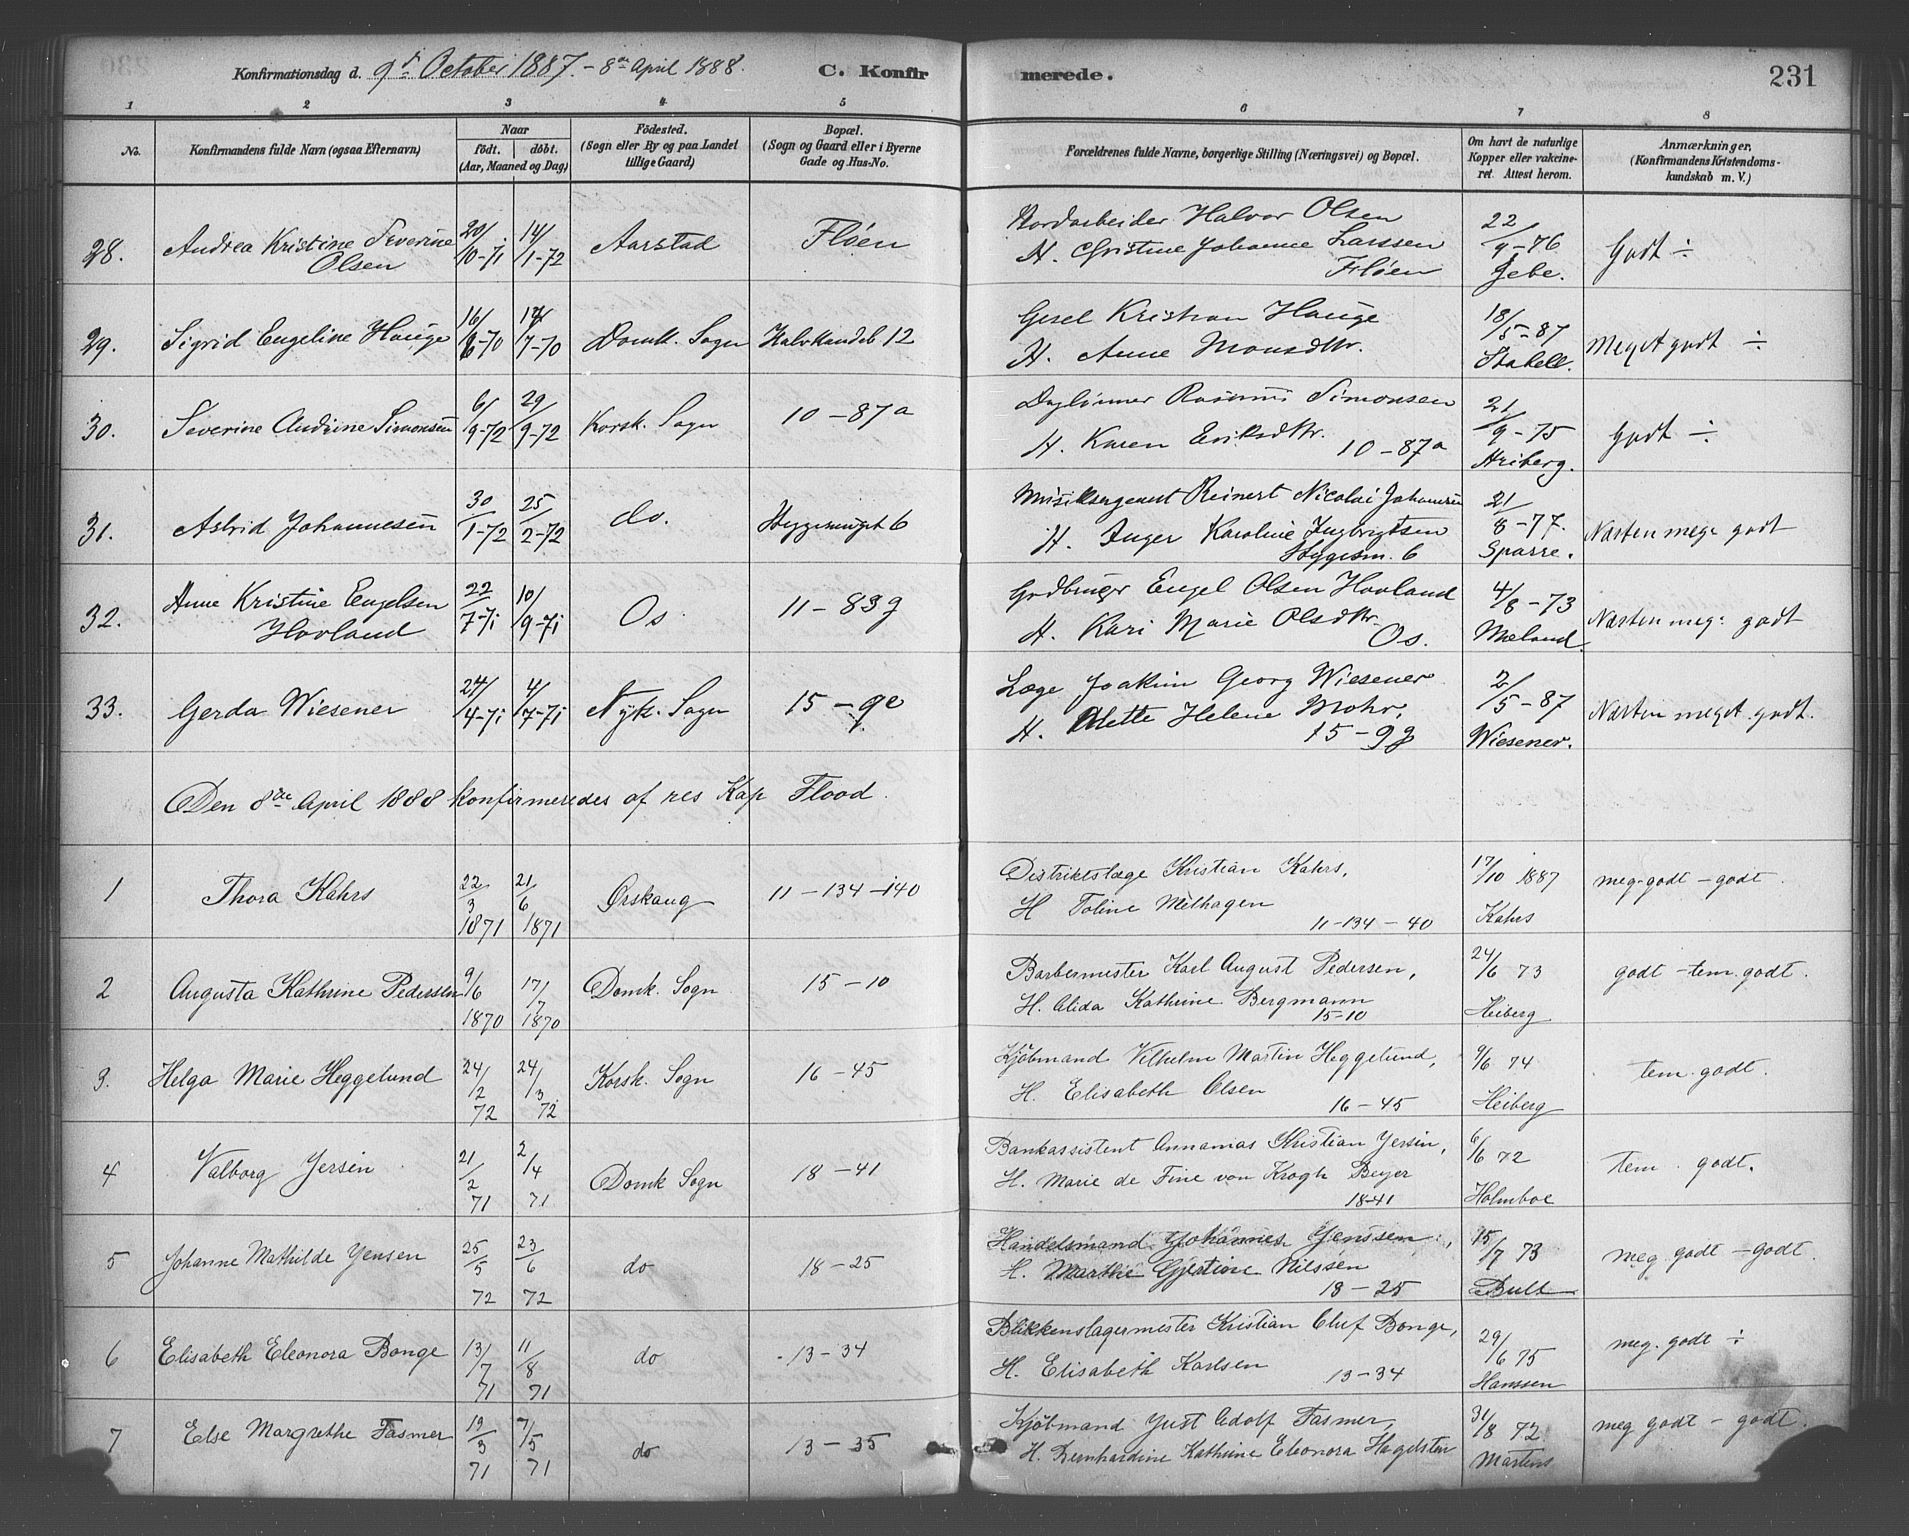 Konfirmationsdag d. 9de October 1887. - 8de April 1888.
C. Konfirmerede.
231
1 2 3 4 5 6 7 8
No.
Konfirmandens fulde Navn (ogsaa Efternavn)
Naar
födt. döbt.
(Aar, Maaned og Dag)
Födested.
(Sogn eller By og paa Landet tillige Gaard)
Bopæl.
(Sogn og Gaard eller i Byerne Gade og Hus-No.
Forældrenes fulde Navne, borgerlige Stilling (Næringsvei) og Bopæl.
Om havt de naturlige Kopper eller vakcineret. Attest herom.
Anmærkninger.
(Konfirmandens Kristendomskundskab m. V.)
28. Andrea Kristine Severine Olsen 20/10-71 14/1-72 Aarstad Fløen
Halvor Olsen
H. Christine Johanne Larssen
Fløen
22/9-76 Jebe.
Godt ÷
29. Sigrid Engeline Hauge 16/6-70 17/7-70 Domk. Sogn 12
Kristian Hauge
H. Anne Monsdtr.
18/5-87
Meget godt ÷
30. Severine Andrine Simonsen 6/9-72 29/9-72 Korsk. Sogn 10-87a
Daglønner Rasmus Simonsen
H. Karen Eriksdtr.
10-87a
21/9-75
Godt ÷
31. Astrid Johannesen 30/1-72 25/2-72 do. 6
Musiksergeant Reinert Nicolai Johannesen
H. Inger Karoline Ingbrigtsen
6
21/8-77. Sparre.
Næsten meg. godt
32. Anne Kristine Engelsen Hovland 22/7-71 10/9-71 Os. 11-83g
Engel Olsen Hovland
H. Kari Marie Olsdtr.
Os.
4/8-73 Meland.
Næsten meg. godt
33. Gerda Wiesener 24/4-71 4/7-71 Nyk. Sogn 15-9e
Læge Joakim Georg Wiesener
H. Mette Helene Mohr,
15-9g
2/5-87 Wiesener.
Næsten meget godt.
Den 8de April 1888 konfirmeredes af res Kap Flood.
1 Thora Kahrs 22/3 1871 21/6 1871 Ørskaug 11-134-140
Distriktslæge Kristian Kahrs,
H Toline Methagen
11-134-40
17/10 1887 Kahrs
meg-godt - godt
2 Augusta Kathrine Pedersen 9/6 1870 17/7 1870 Domk. Sogn 15-10
Barbermester Karl August Pedersen,
H. Alida Kathrine Bergmann
15-10
24/6 73 Heiberg
godt - tem. godt.
3. Helga Marie Heggelund 24/2 72 24/3 72 Korsk. Sogn 16-45
Kjøbmand Vilhelm Martin Heggelund,
H. Elisabeth Olsen
16-45
9/6 74 Heiberg
tem. godt.
4 Valborg Jersin 21/2 71 2/4 71 Domk Sogn 18-41
Bankassistent Annanias Kristian Jersin,
H. Marie de Fine von Krogh Beyer
18-41
6/6 72 Holmboe
tem. godt.
5 Johanne Mathilde Jensen 25/5 72 23/6 72 do 18-25
Handelsmand Johannes Jenssen,
H. Marthe Gjertine Nilssen
18-25
15/7 73 Bull
meg godt - godt.
6 Elisabeth Eleonora Bonge 13/7 71 11/8 71 do 13-34
Blikkenslagermester Kristian Oluf Bonge,
H. Elisabeth Karlsen
13-34
29/6 75 Hanssen
meg. godt ÷
7 Else Margrethe Fasmer 19/3 71 7/5 71 do 13-35
Kjøbmand Just Adolf Fasmer,
H. Bernhardine Kathrine Eleonora Hagelsten
31/8 72 Martens
meg godt - godt.